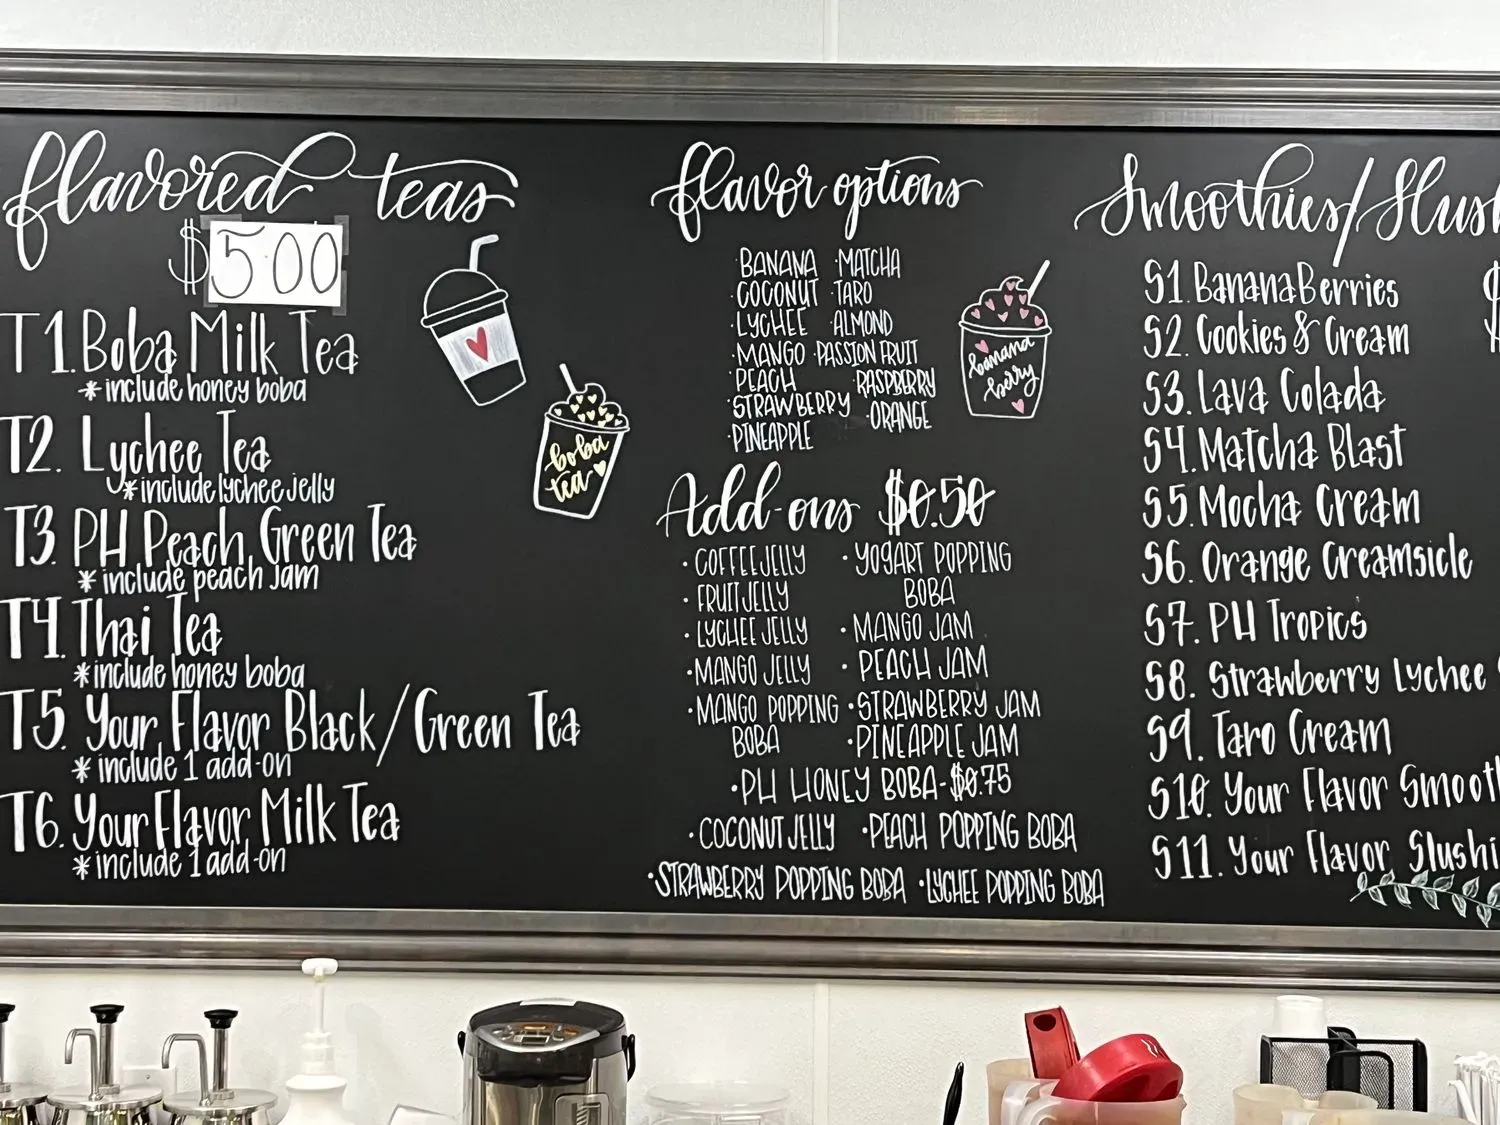 flavored teas
$5.00
T1. Boba Milk Tea
*include honey boba
T2. Lychee Tea
*include lychee jelly
T3. PH Peach Green Tea
*include peach jam
T4. Thai Tea
*include honey boba
T5. Your Flavor Black/Green Tea
*include 1 add-on
T6. Your Flavor Milk Tea
*include 1 add-on
boba
tea
flavor options
·BANANA ·MATCHA
·COCONUT ·TARO
·LYCHEE ·ALMOND
·MANGO ·PASSION FRUIT
·PEACH ·RASPBERRY
·STRAWBERRY ·ORANGE
·PINEAPPLE
banana
berry
Add-ons $0.50
·COFFEE JELLY ·YOGART POPPING
BOBA
·FRUIT JELLY
·LYCHEE JELLY ·MANGO JAM
·MANGO JELLY ·PEACH JAM
·MANGO POPPING ·STRAWBERRY JAM
BOBA ·PINEAPPLE JAM
·PH HONEY BOBA-$0.75
·COCONUT JELLY ·PEACH POPPING BOBA
·STRAWBERRY POPPING BOBA ·LYCHEE POPPING BOBA
Smoothies/Slush
$
S1. BananaBerries
S2. Cookies & Cream
S3. Lava Colada
S4. Matcha Blast
S5. Mocha Cream
S6. Orange Creamsicle
S7. PH Tropics
S8. Strawberry Lychee
S9. Taro Cream
S10. Your Flavor Smoot
S11. Your Flavor Slushi